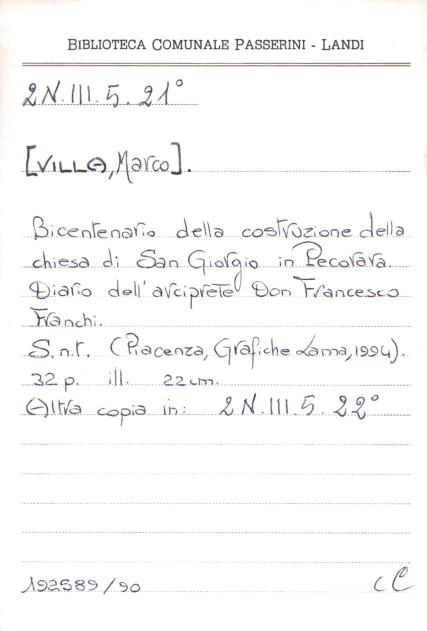 BIBLIOTECA COMUNALE PASSERINI - LANDI
2N.III.5.21°
[VILLA, Marco].
Bicentenario della costruzione della
chiesa di San Giorgio in Pecorara.
Diario dell'arciprete Don Francesco
Franchi.
S.n.t. (Piacenza, Grafiche Lama, 1994).
32 p. ill. 22 cm.
Altra copia in: 2N.III.5.22°
192589/90
cC